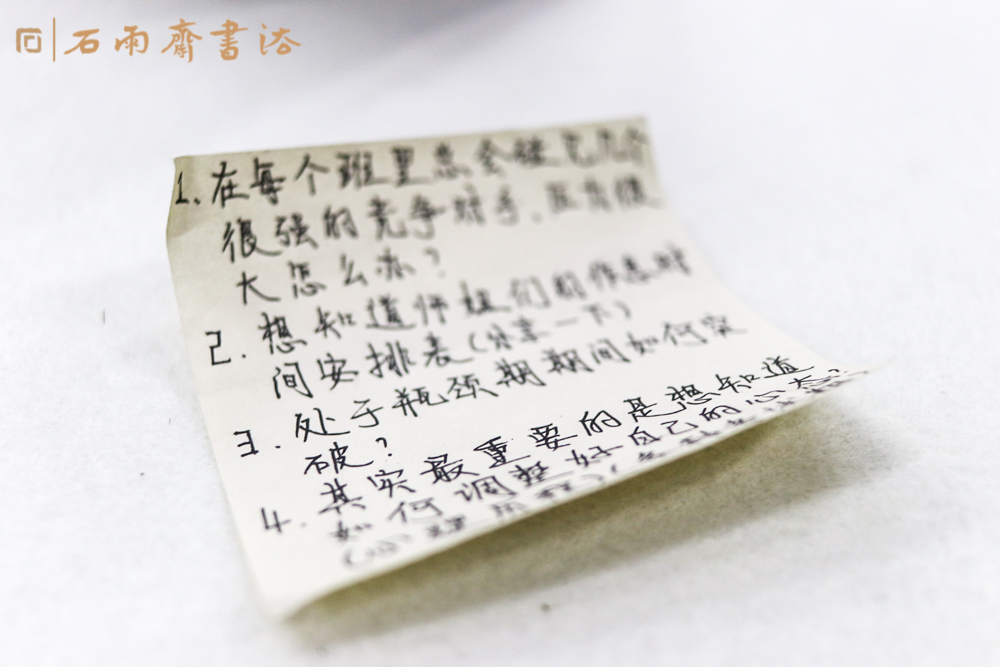 石雨齋書法
1、在每个班里总会碰见几个
很强的竞争对手，压力很
大怎么办？
2. 想知道师姐们的作息时
间安排表(分享一下)
3. 处于瓶颈期期间如何突
破？
4. 其实最重要的是想知道
如何调整好自己的心态？